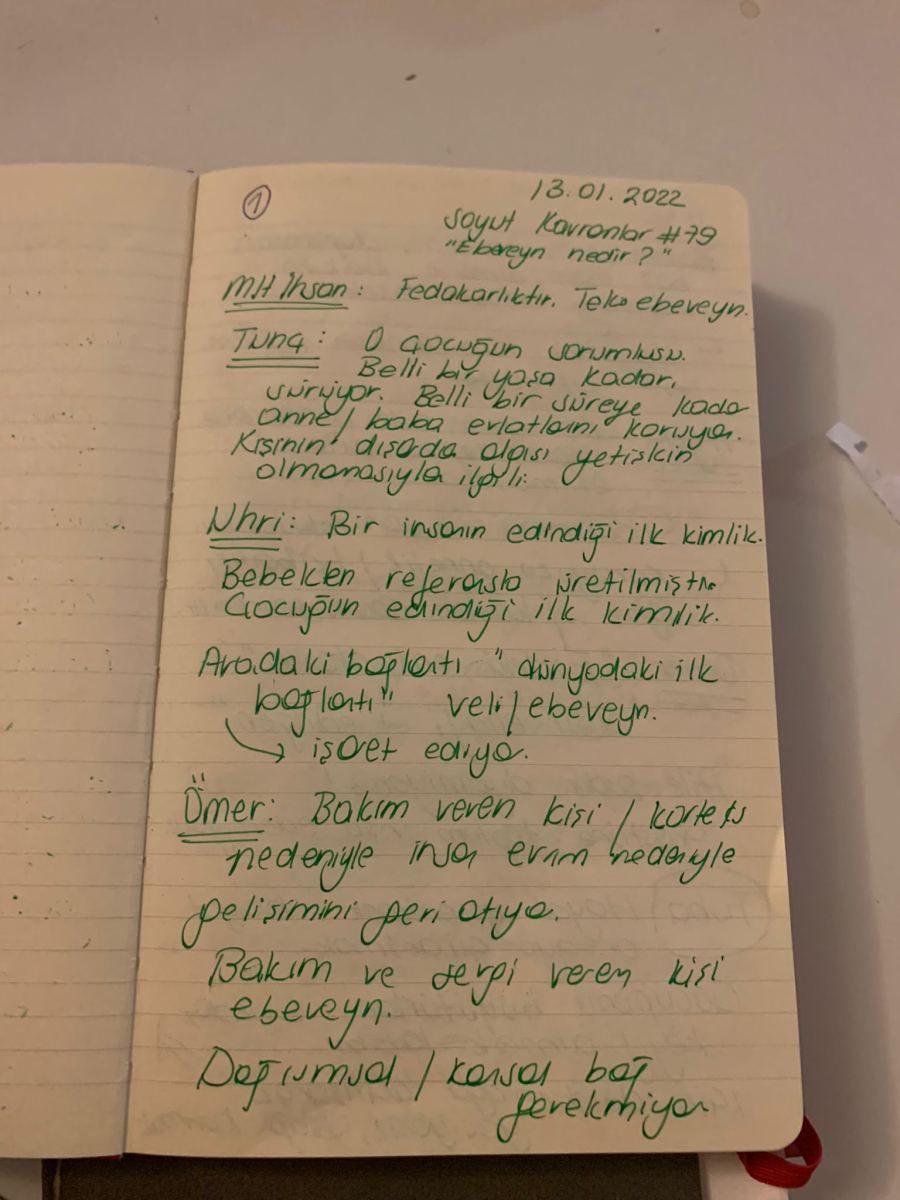 1
13.01.2022
Soyut Kavramlar #79
"Ebeveyn nedir?"
M.H İhsan: Fedakarlıktır. Teko ebeveyn.
Tuna: O çocuğun sorumlusu.
Belli bir yaşa kadar,
sürüyor. Belli bir süreye kadar
anne/baba evlatlarını koruyor.
Kişinin dışarda algısı yetişkin
olmamasıyla ilgili.
Nhri: Bir insanın edindiği ilk kimlik.
Bebekten referansla üretilmiştir
Çocuğun edindiği ilk kimlik.
Aradaki bağlantı "dünyadaki ilk
bağlantı" veli/ebeveyn.
işaret ediyor.
Ömer: Bakım veren kişi / korteks
nedeniyle insan evrim nedeniyle
gelişimini geri atıyor.
Bakım ve sevgi veren kişi
ebeveyn.
Doğumsal / kansal bağ
gerekmiyor